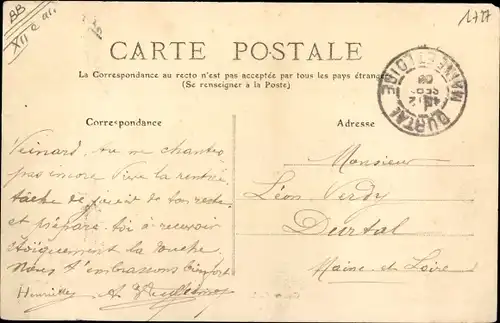 BB
XII e arr.
1727
CARTE POSTALE
La Correspondance au recto n'est pas acceptée par tous les pays étrangers
(Se renseigner à la Poste)
DURTAL
MAINE-ET-LOIRE
Correspondance
Adresse
Veinard, ne me chantes
pas encore Vive la rentrée
tâche de jouir de ton reste
et prépare toi à recevoir
stoïquement la douche
Nous t'embrassons bien fort
Henriette
Monsieur
Léon Verdy
Durtal
Maine et Loire